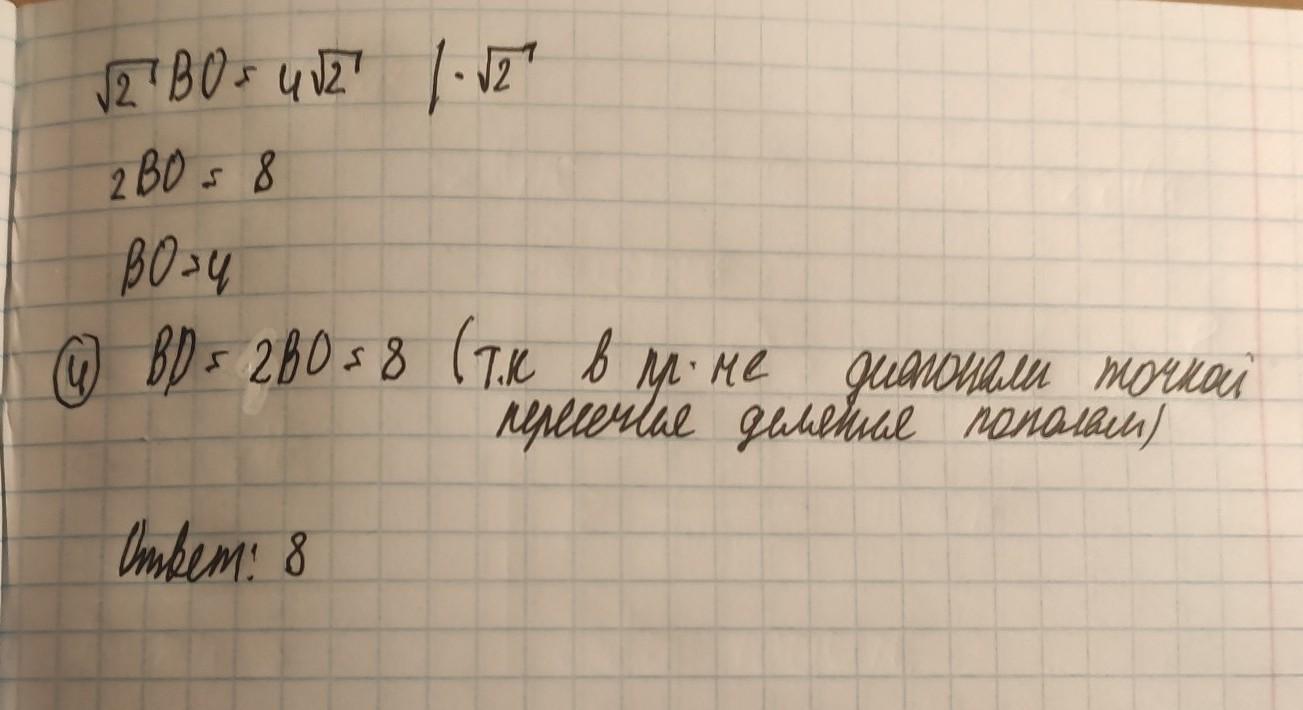 √2 BO = 4√2 | · √2
2BO = 8
BO = 4
④ BD = 2BO = 8 (т.к в пр-ме диагонали точкой
пересечния делятся пополам)
Ответ: 8